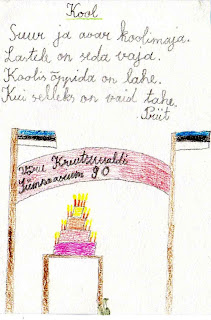 Kool
Suur ja avar koolimaja.
Lastele on seda vaja.
Koolis õppida on lahe.
Kui selleks on vaid tahe.
Priit
Võru Kreutzwaldi
Gümnaasium 90